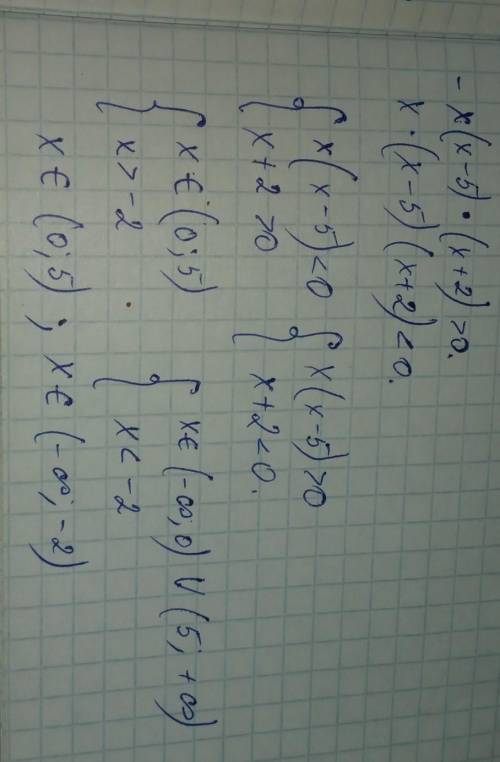 - x(x-5)·(x+2)>0.
x·(x-5)(x+2)<0.
{ x(x-5)<0 { x(x-5)>0
x+2>0 x+2<0.
{ x∈(0;5) { x∈(-∞;0)∪(5;+∞)
x>-2 x<-2
x∈(0;5); x∈(-∞;-2)